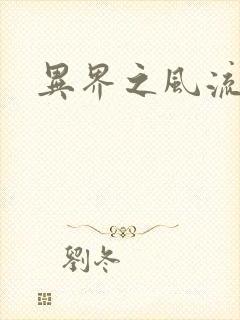 異界之風流
劉冬